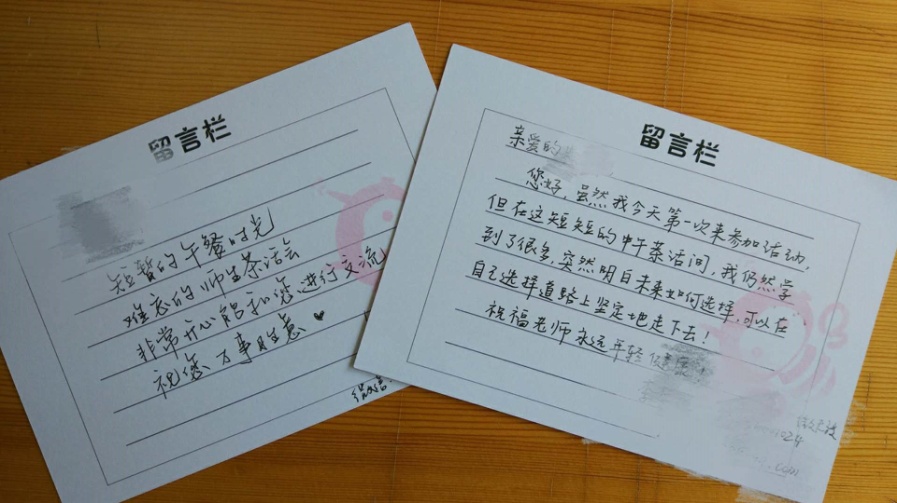 留言栏
短暂的午餐时光
难忘的师生茶话会
非常开心能和您进行交流
祝您万事胜意♥
留言栏
亲爱的
您好,虽然我今天第一次来参加活动,
但在这短短的中午茶话间,我仍然学
到了很多,突然明白未来如何选择,可以在
自己选择道路上坚定地走下去!
祝福老师永远年轻健康